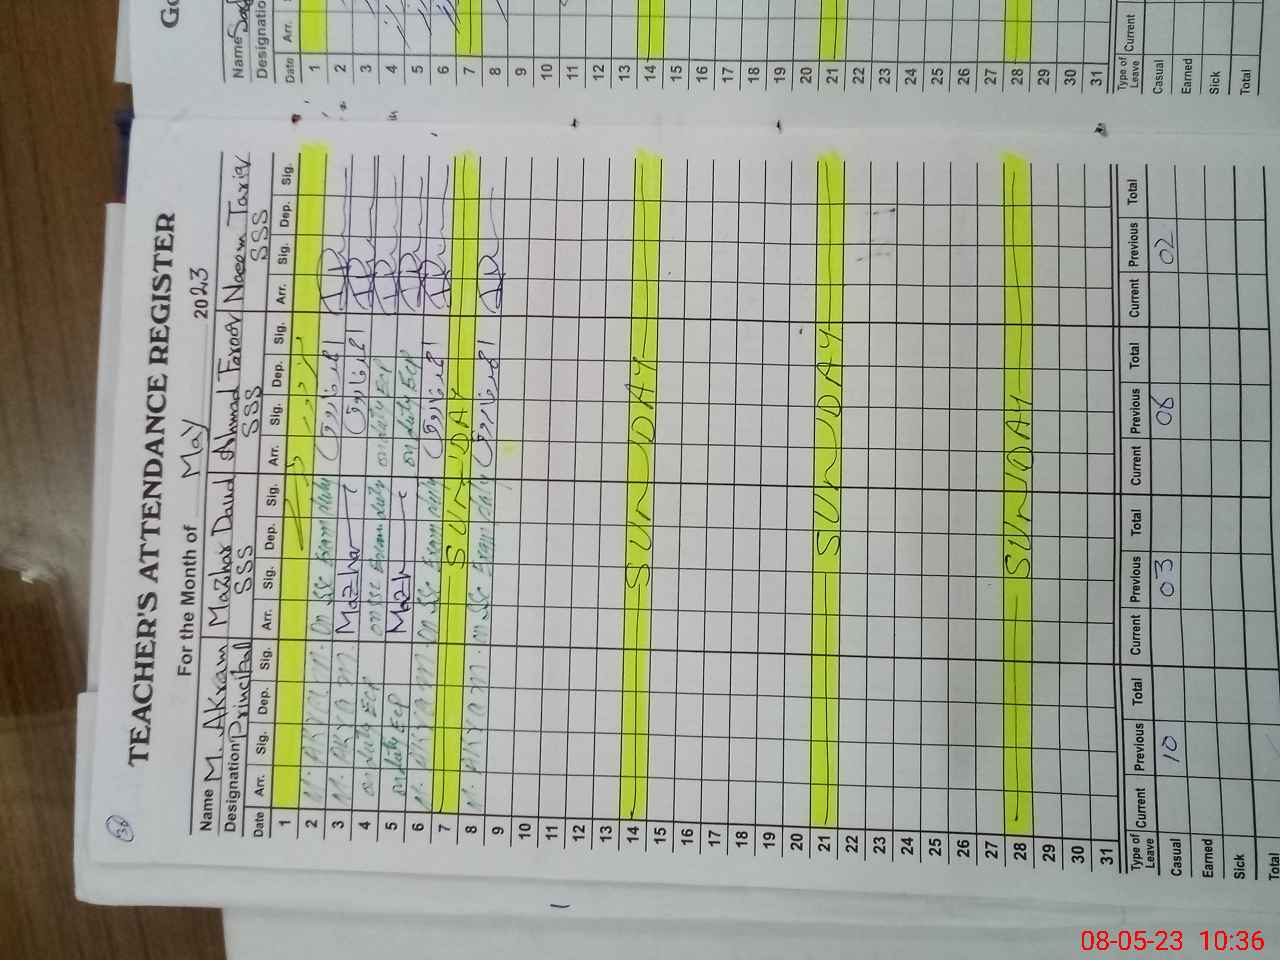 36
TEACHER'S ATTENDANCE REGISTER
For the Month of May 2023
Name M. AKram Mazhar Daud Ahmad Farooq Naeem Tariq
Designation Principal SSS SSS SSS
Date Arr. Sig. Dep. Sig. Arr. Sig. Dep. Sig. Arr. Sig. Dep. Sig. Arr. Sig. Dep. Sig.
1
2 M. AKram. On SSC Exam duty احمد فاروق
3 M. AKram Mazhar احمد فاروق
4 on duty ECP on SSC Exam duty on duty ECP
5 on duty ECP Mazh on duty ECP
6 M. AKram. On SSC Exam duty احمد فاروق
7 SUNDAY
8 M. AKram. on SSC Exam duty احمد فاروق
9
10
11
12
13
14 SUNDAY
15
16
17
18
19
20
21 SUNDAY
22
23
24
25
26
27
28 SUNDAY
29
30
31
Type of Leave Current Previous Total Current Previous Total Current Previous Total Current Previous Total
Casual 10 03 06 02
Earned
Sick
Total
Name
Designatio
Date Arr.
1
2
3
4
5
6
7
8
9
10
11
12
13
14
15
16
17
18
19
20
21
22
23
24
25
26
27
28
29
30
31
Type of Leave Current
Casual
Earned
Sick
Total
08-05-23 10:36